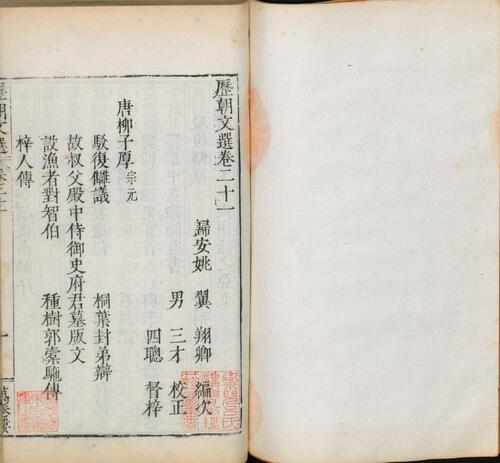 歷朝文選卷二十一
歸安姚 翼 翔卿 編次
男 三才 校正
四聰 督梓
唐柳子厚宗元
駁復讎議 桐葉封弟辯
故叔父殿中侍御史府君墓版文
設漁者對智伯 種樹郭橐駞傳
梓人傳
歷朝文選 卷二十一
一